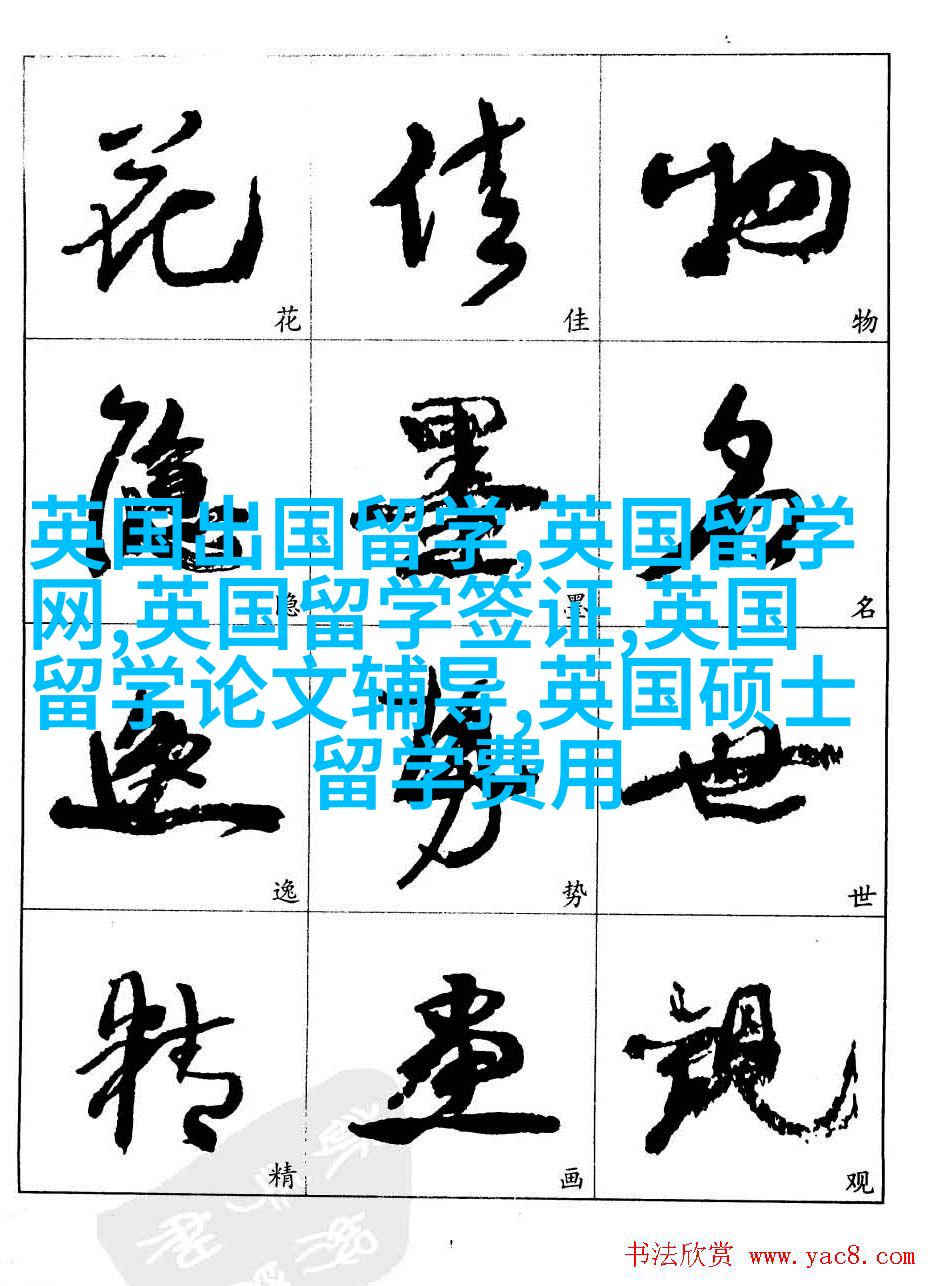 花 佳 物
花 佳 物
隐 墨 名
英国出国留学,英国留学
网,英国留学签证,英国
留学论文辅导,英国硕士
留学费用
隐 墨 名
逸 势 世
逸 势 世
精 画 观
精 画 观
书法欣赏 www.yac8.com